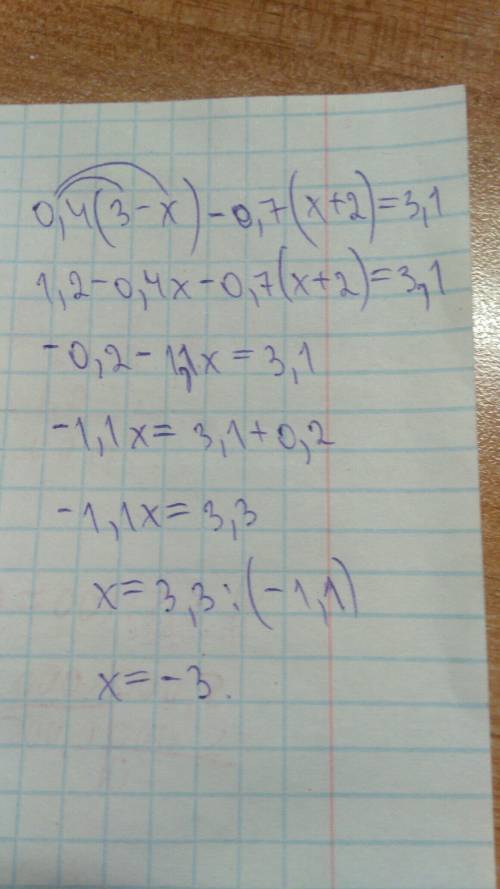 0,4(3-x)-0,7(x+2)=3,1
1,2-0,4x-0,7(x+2)=3,1
-0,2-1,1x=3,1
-1,1x=3,1+0,2
-1,1x=3,3
x=3,3:(-1,1)
x=-3.